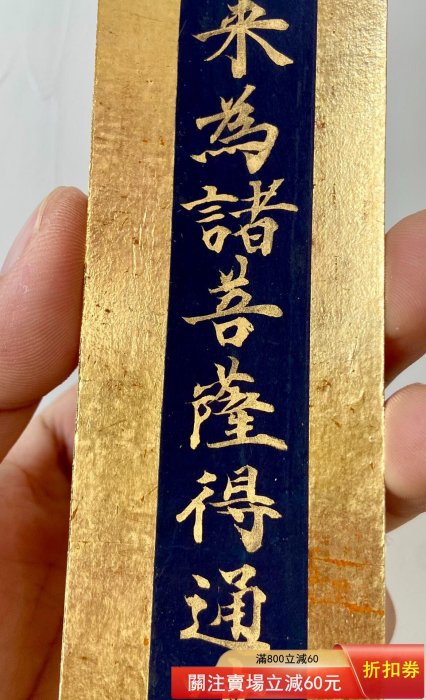 来為諸菩薩得通
滿800立減60
關注賣場立減60元
折扣券